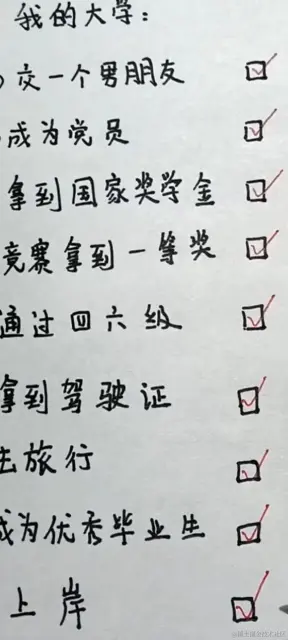 我的大学：
交一个男朋友
成为党员
拿到国家奖学金
竞赛拿到一等奖
通过四六级
拿到驾驶证
去旅行
成为优秀毕业生
上岸